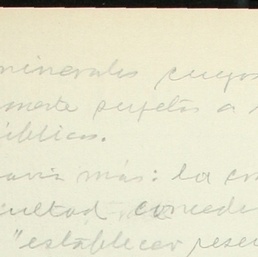 minerales cuyos
mente sujetos a
úblicos.
avía más: la co
cultad conced
"establecer rese